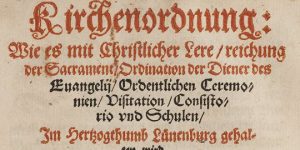 Kirchenordnung:
Wie es mit Christlicher Lere/ reichung
der Sacrament/ Ordination der Diener des
Euangelij/ Ordentlichen Ceremo-
nien/ Visitation/ Consisto-
rio vnd Schulen/
Im Hertzogthumb Lünenburg gehal-
ten wird